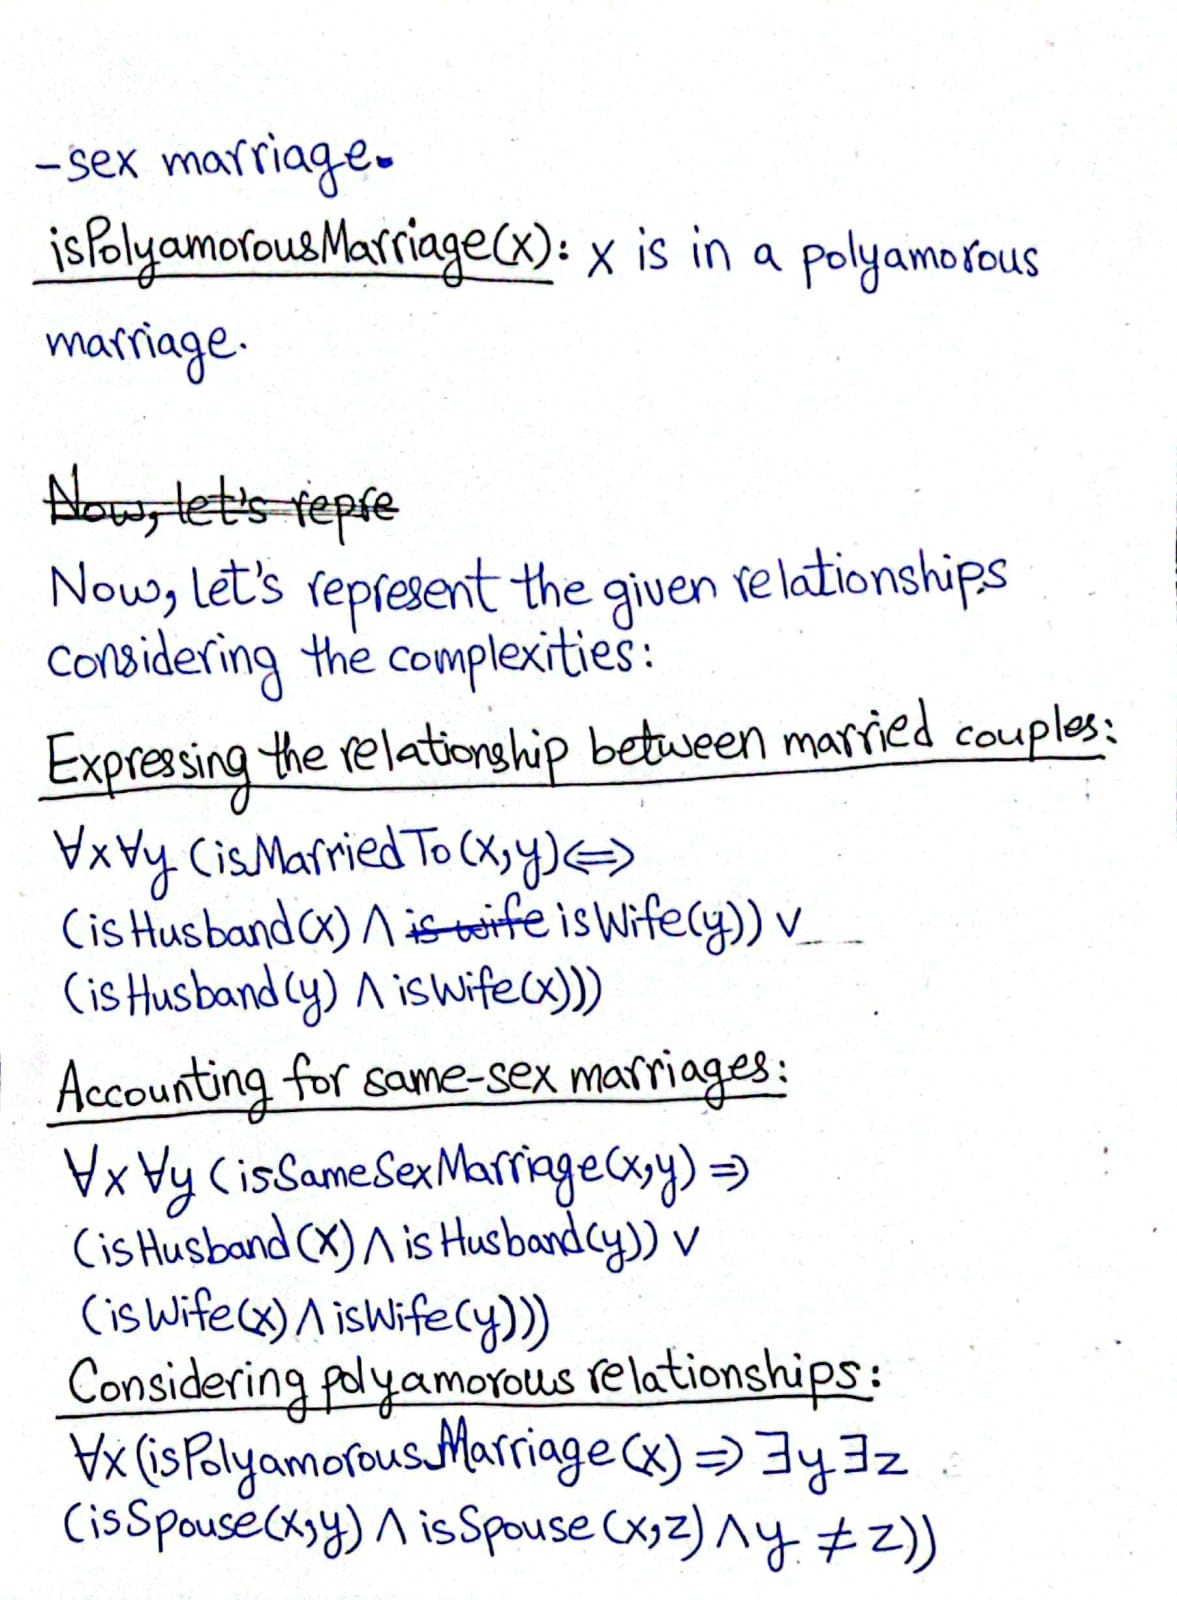 -sex marriage.
isPolyamorousMarriage(x): x is in a polyamorous
marriage.
Now, let's repre
Now, let's represent the given relationships
considering the complexities:
Expressing the relationship between married couples:
∀x∀y (isMarriedTo(x,y)⇔
(isHusband(x) ∧ is wife isWife(y)) ∨
(isHusband(y) ∧ isWife(x)))
Accounting for same-sex marriages:
∀x ∀y (isSameSexMarriage(x,y) ⇒
(isHusband(x) ∧ isHusband(y)) ∨
(isWife(x) ∧ isWife(y)))
Considering polyamorous relationships:
∀x (isPolyamorousMarriage(x) ⇒ ∃y∃z
(isSpouse(x,y) ∧ isSpouse(x,z) ∧ y ≠ z))